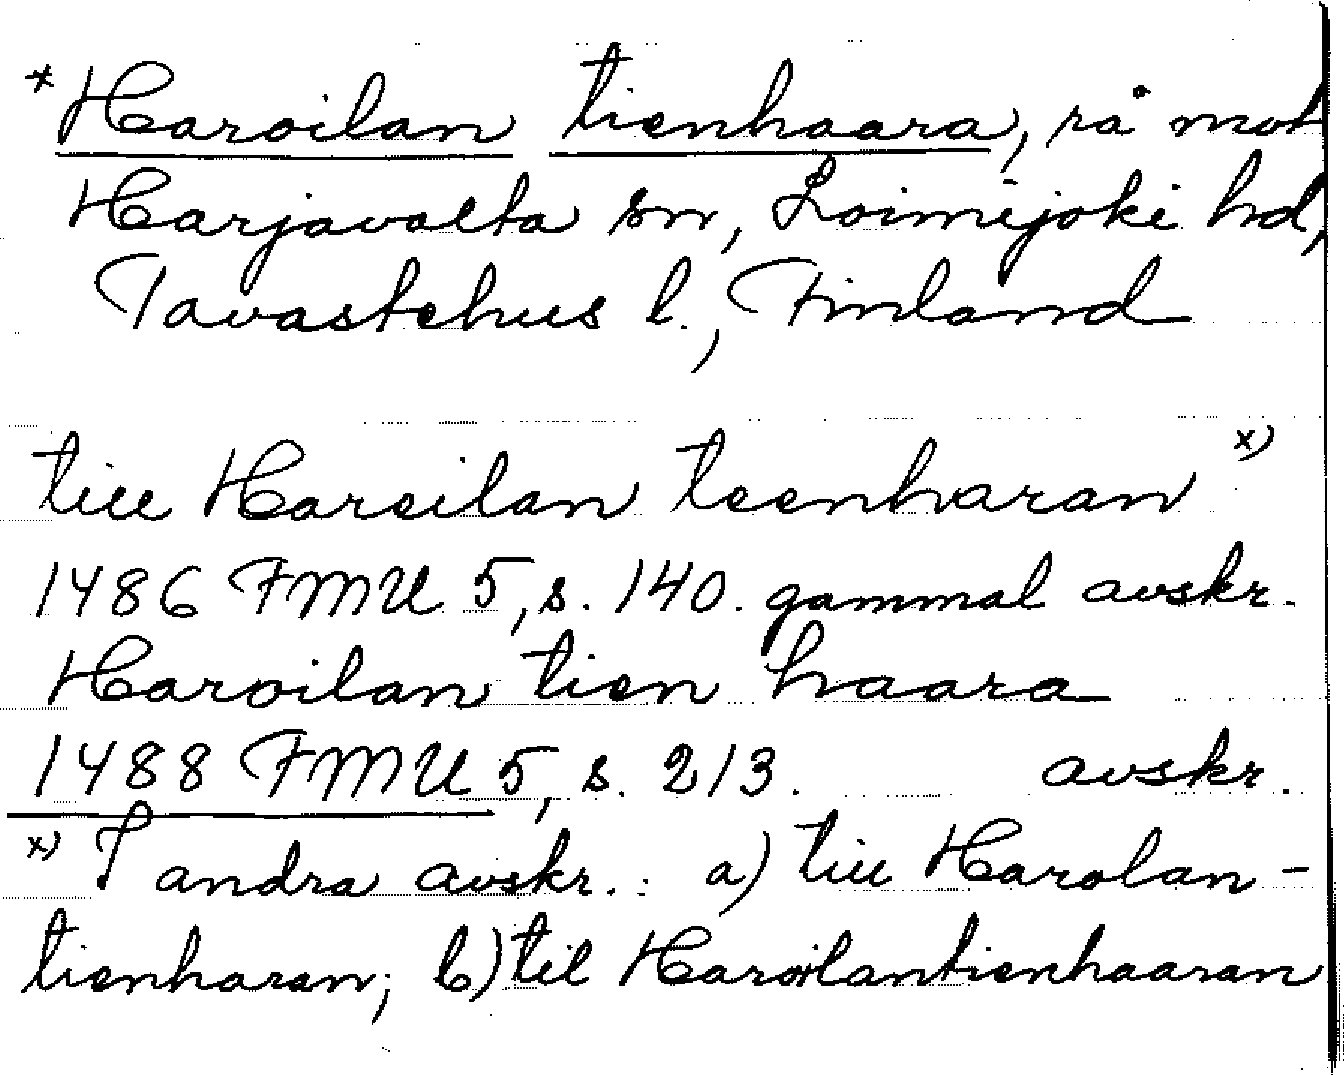 *Haroilan tienhaara, rå mot
Harjavalta sn, Loimijoki hd,
Tavastehus l., Finland
till Haroilan teenharan x)
1486 FMU 5, s. 140. gammal avskr.
Haroilan tien haara
1488 FMU 5, s. 213. avskr.
x) I andra avskr.: a) till Harolan-
tienharan; b) til Haroilantienhaaran